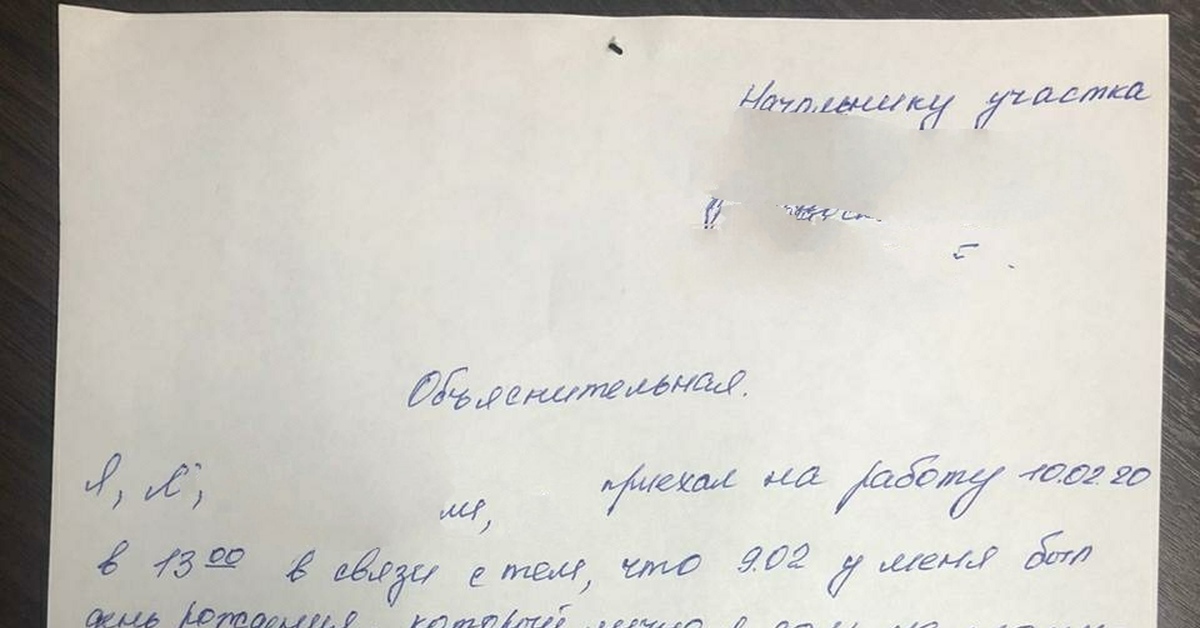 Начальнику участка
Объяснительная.
Я, приехал на работу 10.02.20
в 13 00 в связи с тем, что 9.02 у меня был
день рождения, который